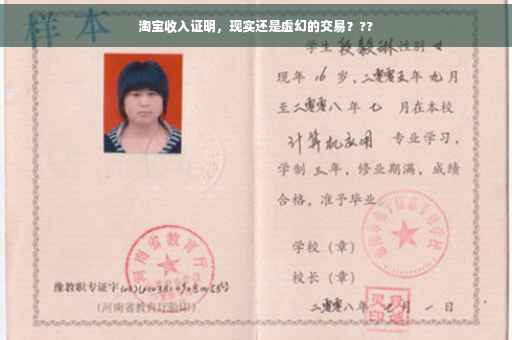 淘宝收入证明，现实还是虚幻的交易？??
样本
学生段毅琳性别 女
现年 16 岁，二零零五年 九月
至二零零八年 七 月在本校
计算机应用 专业学习，
学制 三年，修业期满，成绩
合格，准予毕业
学校（章）
校长（章）
河南省教育厅
豫教职专证字
(河南省教育厅验印)
二零零八年 七 月 一 日